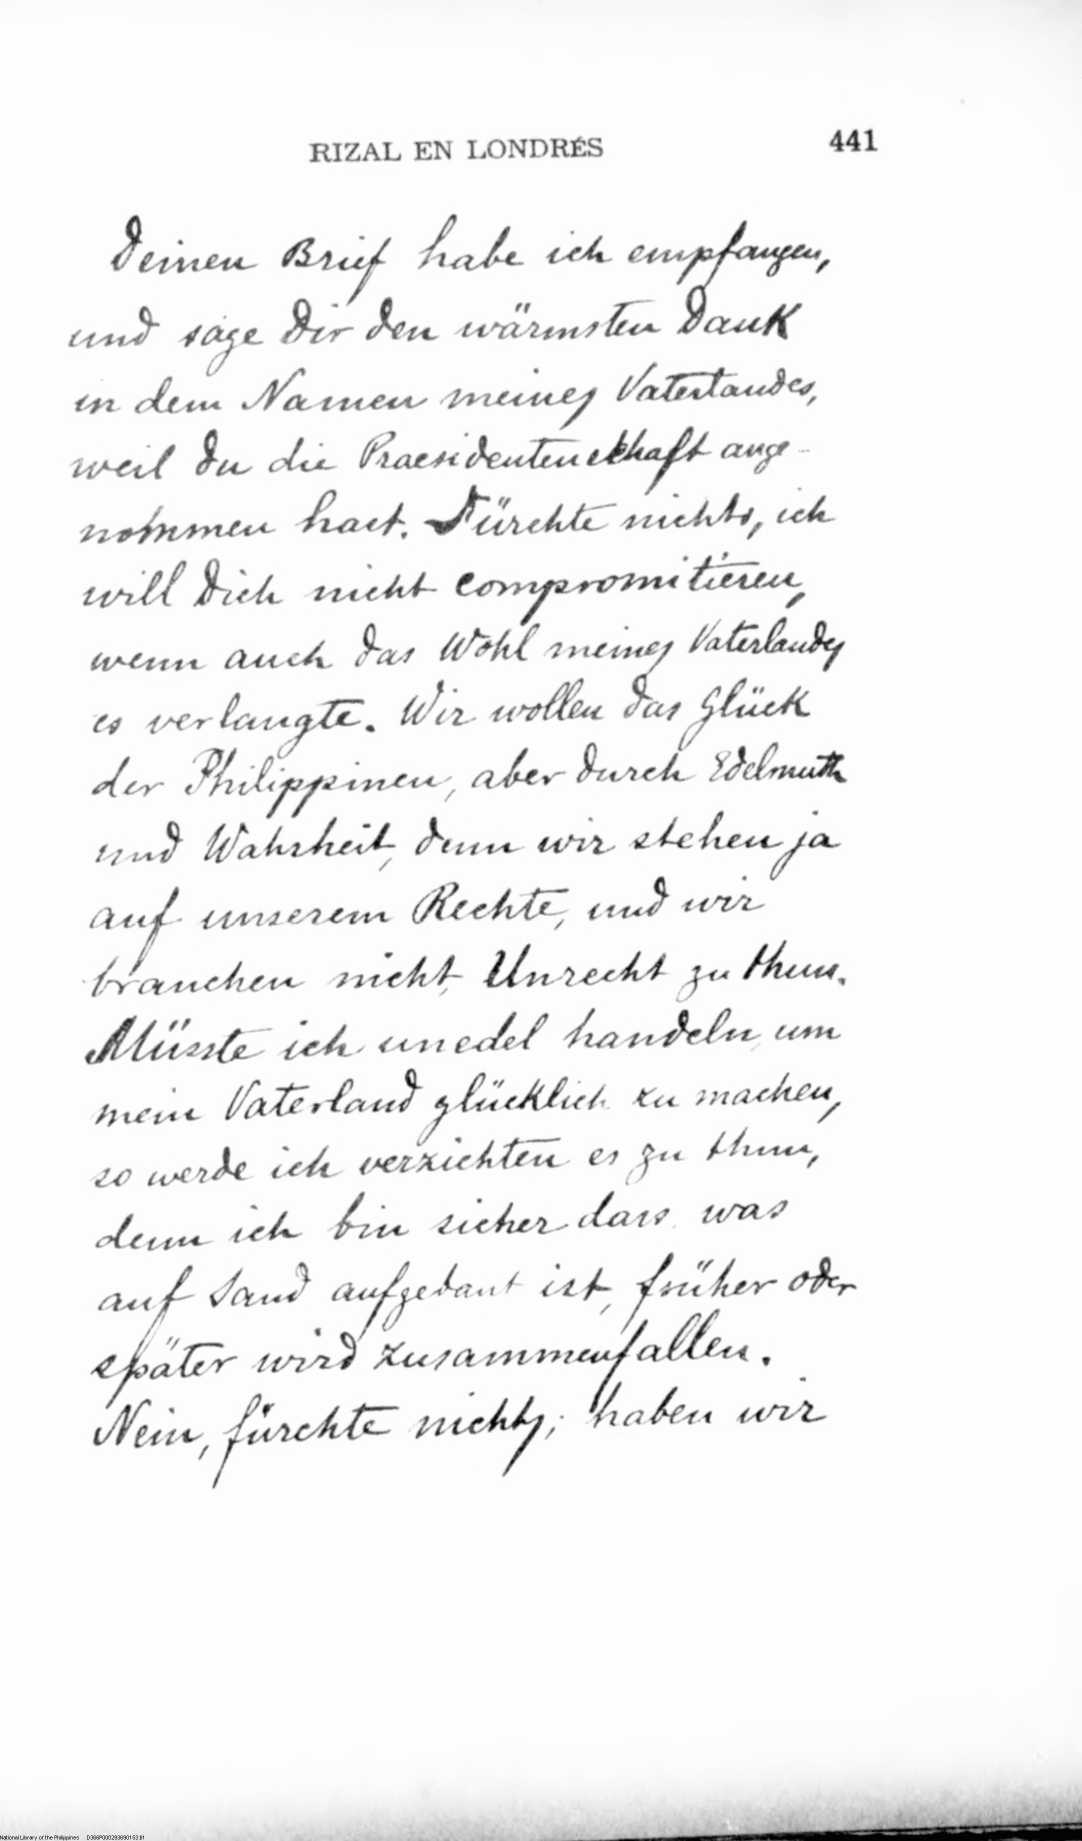 RIZAL EN LONDRÉS 441
Deinen Brief habe ich empfangen,
und sage Dir den wärmsten Dank
in dem Namen meines Vaterlandes,
weil du die Praesidentenschaft ange-
nommen hast. Fürchte nichts, ich
will Dich nicht compromitieren,
wenn auch das Wohl meines Vaterlandes
es verlangte. Wir wollen das Glück
der Philippinen, aber durch Edelmuth
und Wahrheit, denn wir stehen ja
auf unserem Rechte, und wir
brauchen nicht, Unrecht zu thun.
Müsste ich unedel handeln, um
mein Vaterland glücklich zu machen,
so werde ich verzichten es zu thun,
denn ich bin sicher dass was
auf Sand aufgebaut ist, früher oder
später wird zusammenfallen.
Nein, fürchte nichts; haben wir
National Library of the Philippines D366P000283890153.tif